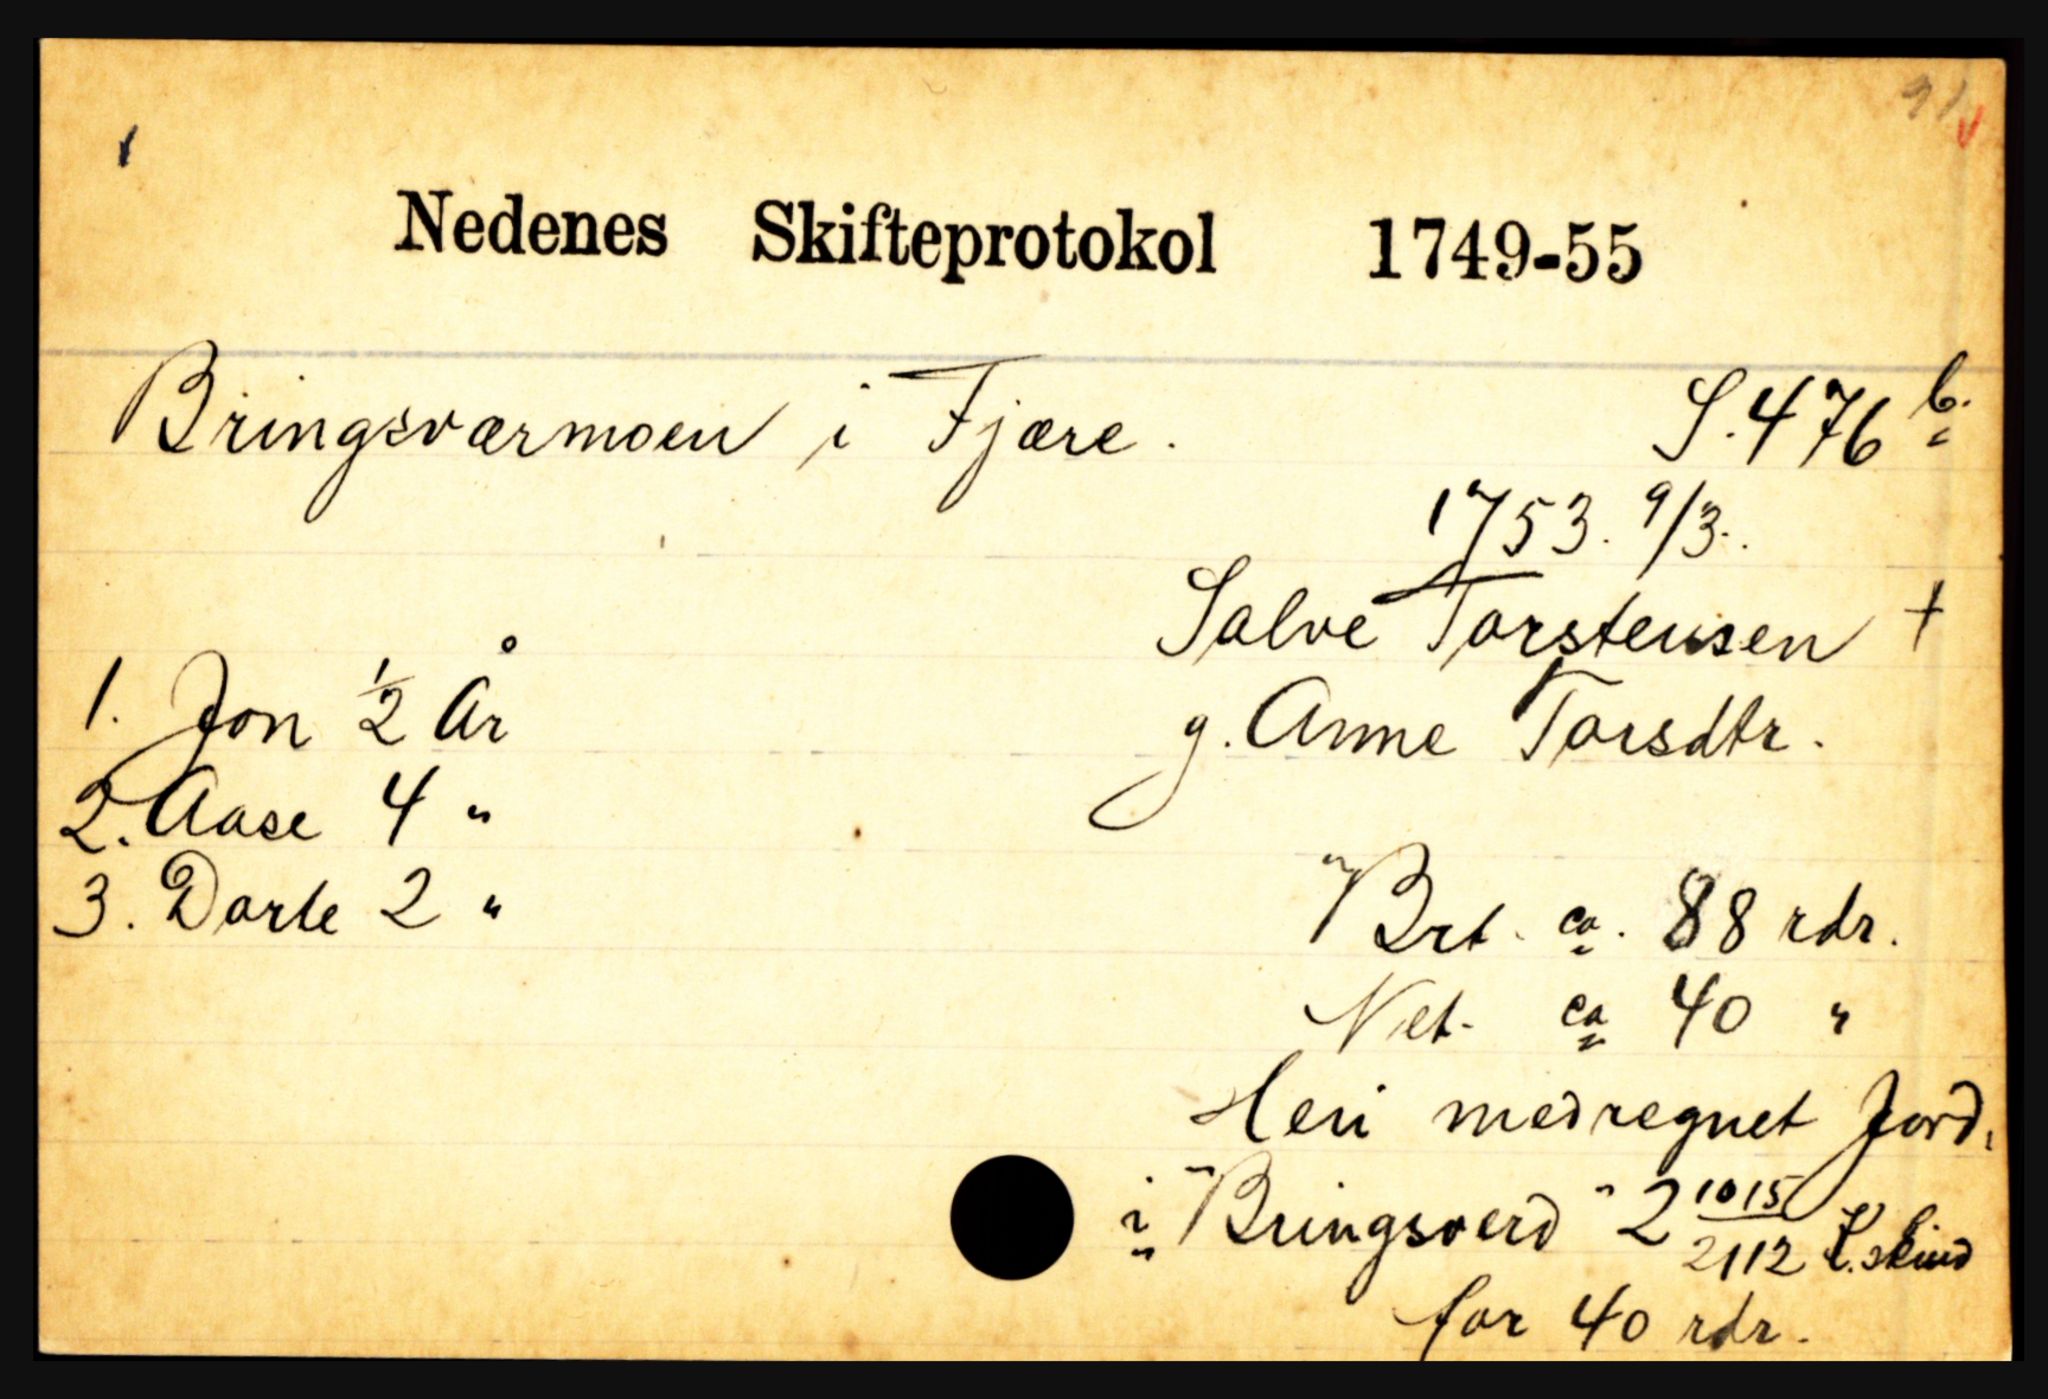 Nedenes Skifteprotokol 1749-55
Bringsværmoen i Fjære. S. 476 b.
1753. 9/3.
Salve Torstensen +
g. Anne Torsdtr.
1. Jon ½ År
2. Aase 4 "
3. Dorte 2 "
Brt. ca. 88 rdr.
Net. ca 40 "
Heri medregnet Jord.
i Bringsverd 2 1015/2112 K.skind
for 40 rdr.